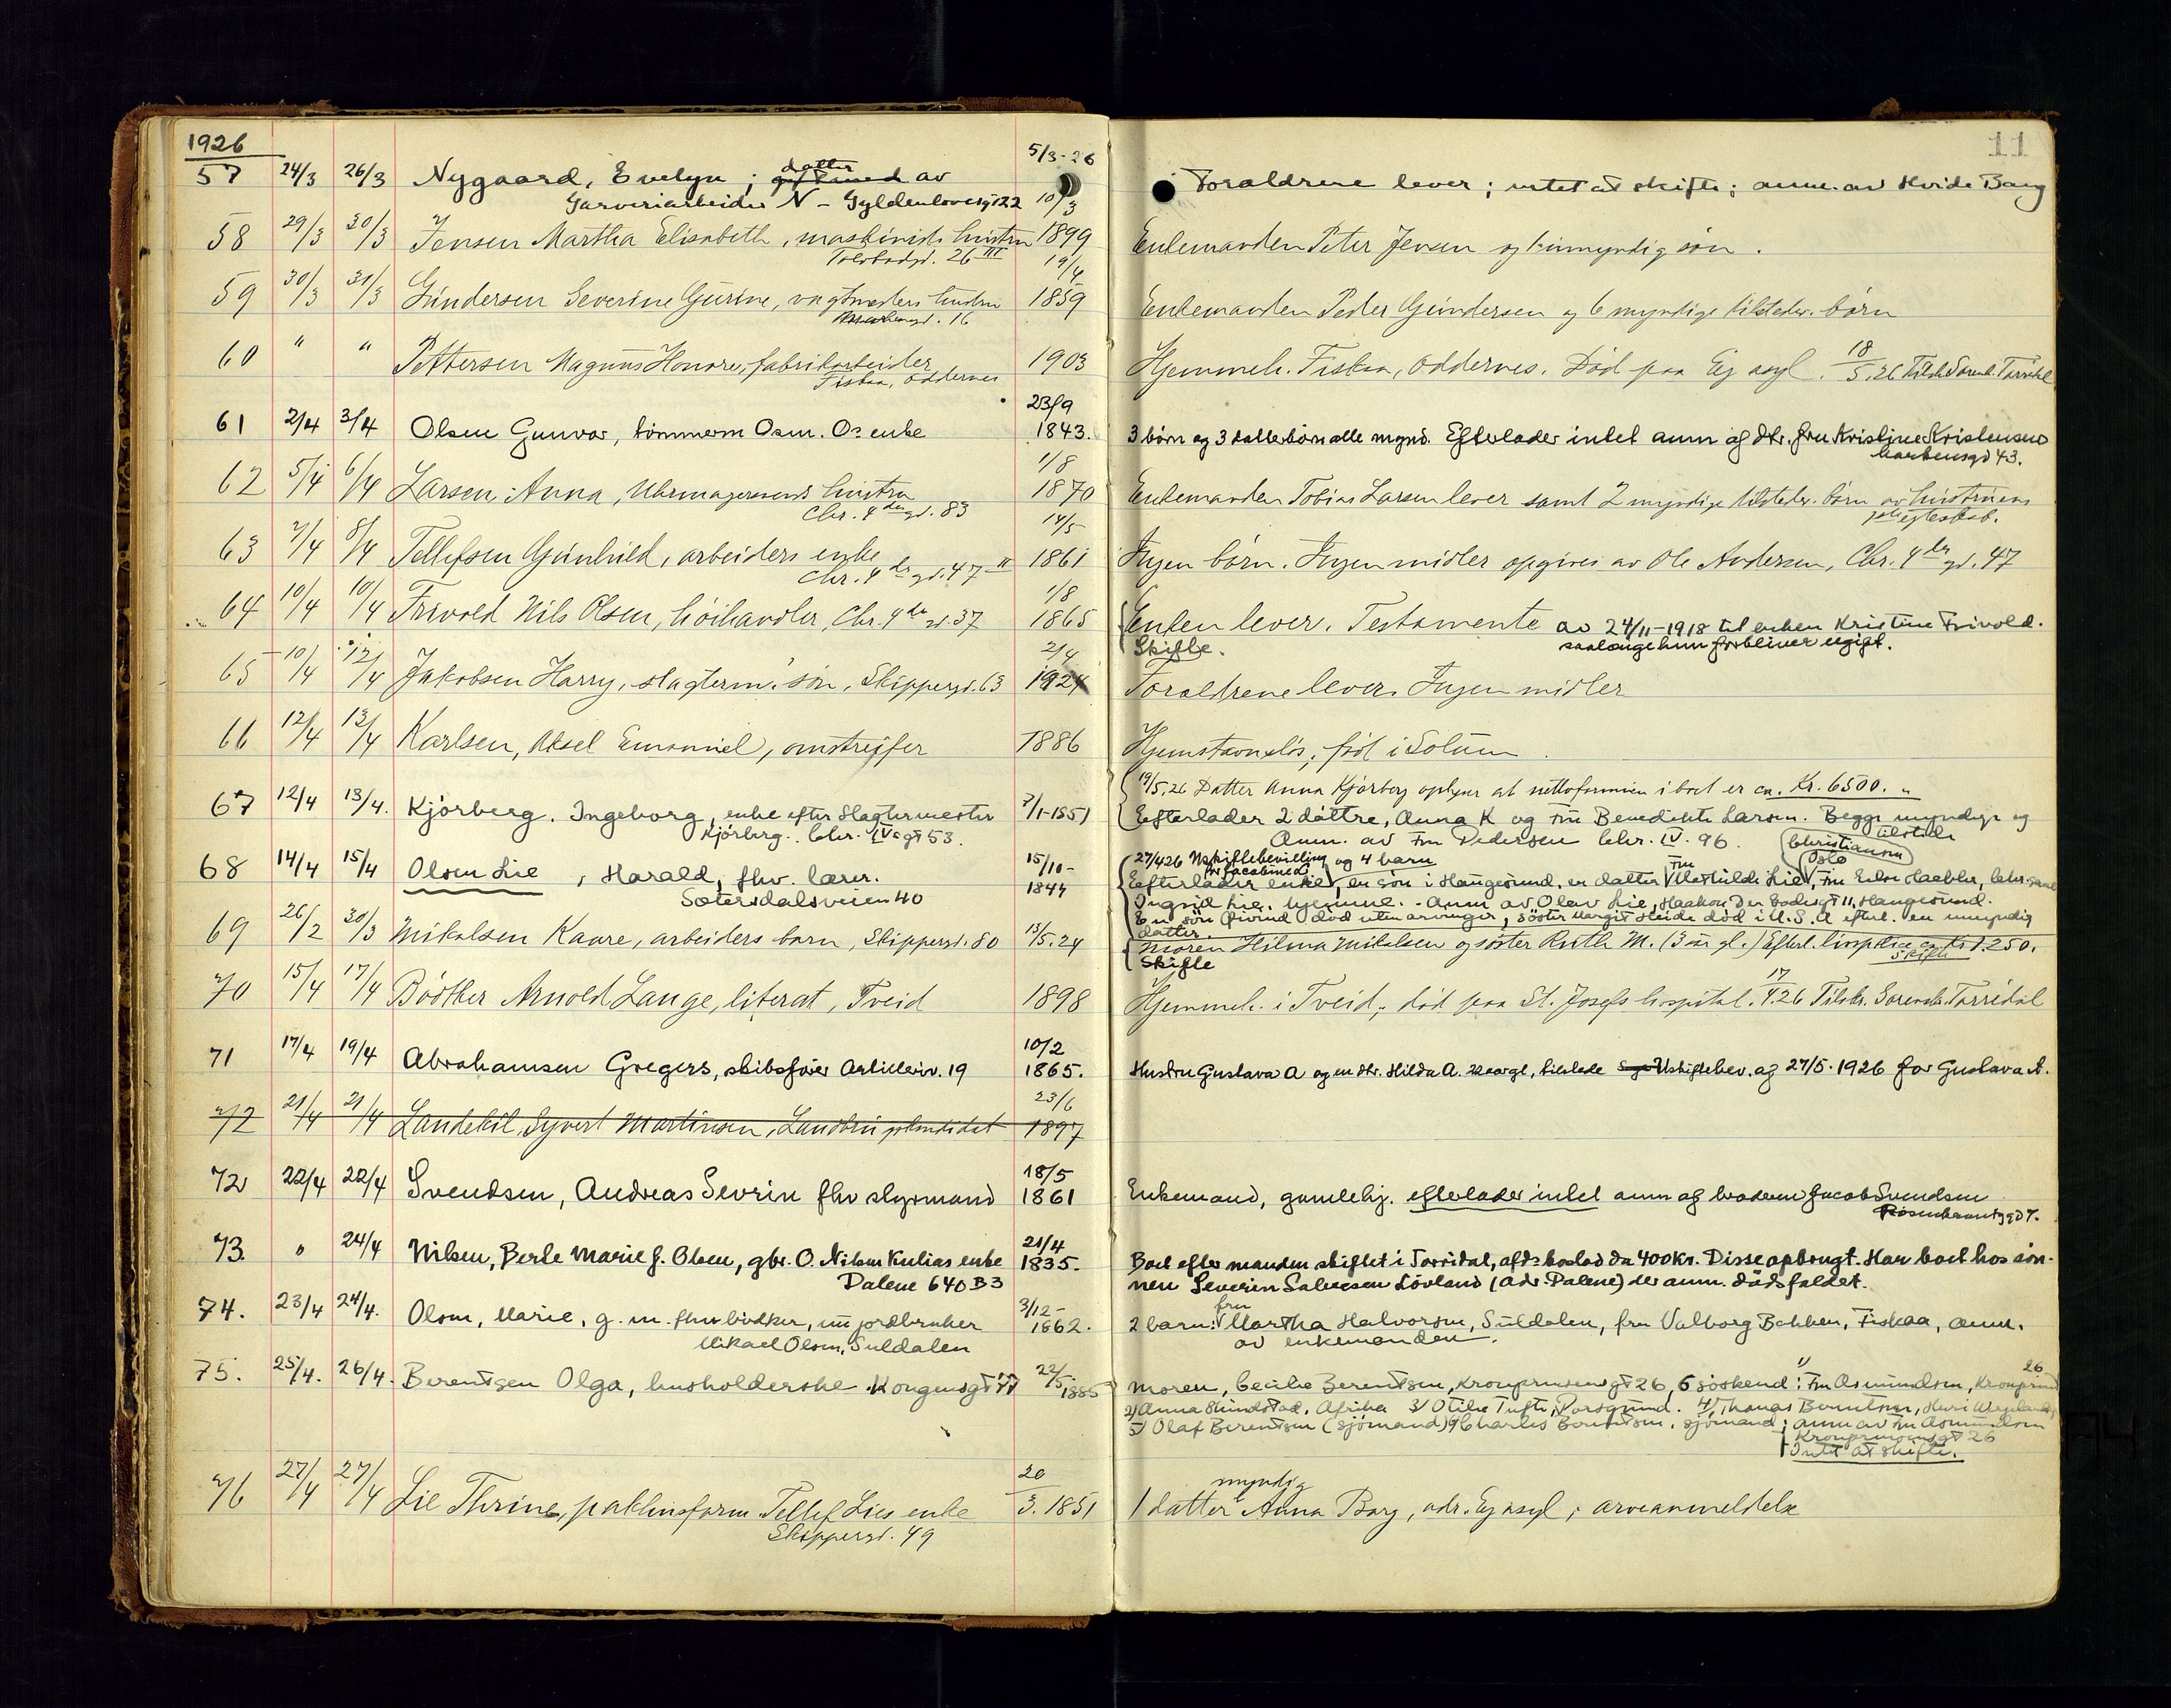 1926
11
57 24/3 26/3 Nygaard, Evelyn ; datter av 5/3-26 Foraldrene lever ; intet at skifte ; anm. av Hvide Bang
Garveriarbeider N - Gyldenlovesgt 22
58 29/3 30/3 Jensen Martha Elisabeth, maskinists hustru 10/3 1899 Enkemanden Peter Jensen og 1 inmyndig søn.
Tolbodgd. 26 III
59 30/3 31/3 Gundersen Severine Gurine, vagtmesters hustru 19/4 1859 Enkemanden Peder Gundersen og 6 myndige tilstedev. børn
Markensgd. 16
60 " " Pettersen Magnus Honore, fabrikarbeider 1903 Hjemmeh. Fiskaa, Oddernes. Død paa Eg asyl. 18/5.26 Tilsk. Sorensk. Torridal
Fiskaa, Oddernes
61 2/4 3/4 Olsen Gunvor, tømmerm Osm. O's enke 23/9 1843. 3 børn og 3 dattebørn alle mynd. Efterlader intet anm af dtr. fru Kristine Kristensen
Markensgd 43.
62 5/4 6/4 Larsen Anna, Uhrmagersvends hustru 1/8 1870 Enkemanden Tobias Larsen lever samt 2 myndige tilstedev. børn av hustruens
Chr. 4des gd. 83 egteskab.
63 7/4 8/4 Tellefsen Gunhild, arbeiders enke 14/5 1861 Ingen børn. Ingen midler opgives av Ole Andersen, Chr. 4des gd. 47
Chr. 4des gd. 47 II
64 10/4 10/4 Frivold Nils Olsen, høihandler, Chr. 4de gd. 37 1/8 1865 Enken lever. Testamente av 24/11-1918 til enken Kristine Frivold.
Skifte. saalænge hun forbliver ugift.
65 10/4 12/4 Jakobsen Harry, slagterm. søn, Skippergd. 63 2/4 1924 Foraldrene lever. Ingen midler
66 12/4 13/4 Karlsen, Aksel Emanuel, omstreifer 1886 Hjemstavnsløs, født i Solum.
19/5.26 Datter Anna Kjørberg oplyser at nettoformuen i boet er ca. Kr. 6500. "
67 12/4 13/4. Kjørberg. Ingeborg, enke efter Slagtermester 7/1-1851 Efterlader 2 døttre, Anna K og Fru Benedikte Larsen. Begge myndige og
Kjørberg. Chr. IVs gt 53. Anm. av Fru Pedersen Chr. IV. 96. tilstede
27/4 26 Uskiftebevilling for Jacobine L og 4 barn Christianssn Oslo
68 14/4 15/4 Olsen Lie, Harald, fhv. lærer. 15/10-1844 Efterlader enke, en søn i Haugesund, en datter Fru Mathilde Lie, Fru Edle Haebler, Chr.sand
Sætersdalsveien 40 Ingrid Lie. hjemme. - Anm av Olav Lie, Haakon Den Godesgt 11, Haugesund.
En søn Øivind død uten arvinger, søster Margit Heide død i U.S.A efterl. en umyndig
datter.
69 26/2 30/3 Mikalsen Kaare, arbeiders barn, Skippergd. 80 13/5.24 Moren Hilma Mikalsen og søster Ruth M. (3 år gl.) Efterl. livspolice ca Kr 1.250.
Skifte Skifte
70 15/4 17/4 Bødtker Arnold Lange, literat, Tveid 1898 Hjemmeh. i Tveid; død paa St. Josefs hospital. 17/4.26 Tilskr. Sorensk. Torridal
71 17/4 19/4 Abrahamsen Gregers, skibsfører Artilleriv. 19 10/2 1865. Hustru Gustava A og en dtr. Hilda A. tilstede Uskiftebev. af 27/5.1926 for Gustava A.
72 21/4 21/4 Landekil, Syvert Martinsen, 23/6 1897
72 22/4 22/4 Svendsen, Andreas Sevrin fhv styrmand 18/5 1861 Enkemand, gamlehj. efterlader intet anm af broderen Jacob Svendsen
Rosenkrantzgd 7.
73. " 24/4 Nilsen, Berte Marie f. Olsen, gbr. O. Nilsen Kulias enke 21/4 1835. Boet efter manden skiftet i Torridal, afd: boslod da 400 Kr. Disse opbrugt. Har boet hos søn-
Dalene 640 B3 nen Severin Salvesen Løvland (Adr. Dalene) der anm. dødsfaldet.
74. 23/4 24/4. Olsen, Marie, g. m. fhv bødker, nu jordbruker 3/12-1862. 2 barn: fru Martha Halvorsen, Suldalen, fru Valborg Bakken, Fiskaa, anm.
Mikael Olsen, Suldalen av enkemanden.
75. 25/4. 26/4. Berentsen Olga, husholderske Kongensgt 22/5 1885 Moren, Cecilie Berentsen, Kronprinsensgt 26, 6 søskend: 1) Fru Asmundsen, Kronprins 26
2) Anna Skindstad, Afrika 3) Otilie Tufte, Porsgrund. 4) Thomas Berentsen,
5) Olaf Berentsen (sjømand) 6) Charles Berentsen, sjømand; anm av Fru Asmundsen
Kronprinsensgt 26
Intet at skifte.
76 27/4 27/4 Lie Thrine, pakhusform. Tellef Lies enke 20/3. 1851 1 myndig datter Anna Borg, adr. Eg asyl ; arveanmeldelse
Skippergd. 49